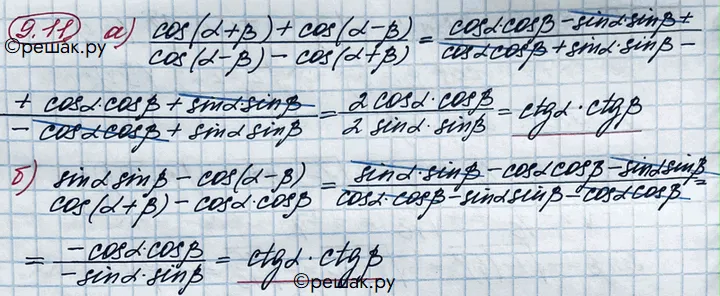 9.11 а) cos(α+β) + cos(α-β) / cos(α-β) - cos(α+β) = cosα·cosβ - sinα·sinβ + / cosα cosβ + sinα·sinβ -
©решак.ру
+ cosα·cosβ + sinα sinβ / - cosα cosβ + sinα sinβ = 2 cosα·cosβ / 2 sinα·sinβ = ctgα·ctgβ
б) sinα sinβ - cos(α-β) / cos(α+β) - cosα·cosβ = sinα·sinβ - cosα cosβ - sinα sinβ / cosα·cosβ - sinα sinβ - cosα cosβ =
= -cosα·cosβ / -sinα·sinβ = ctgα·ctgβ
©решак.ру